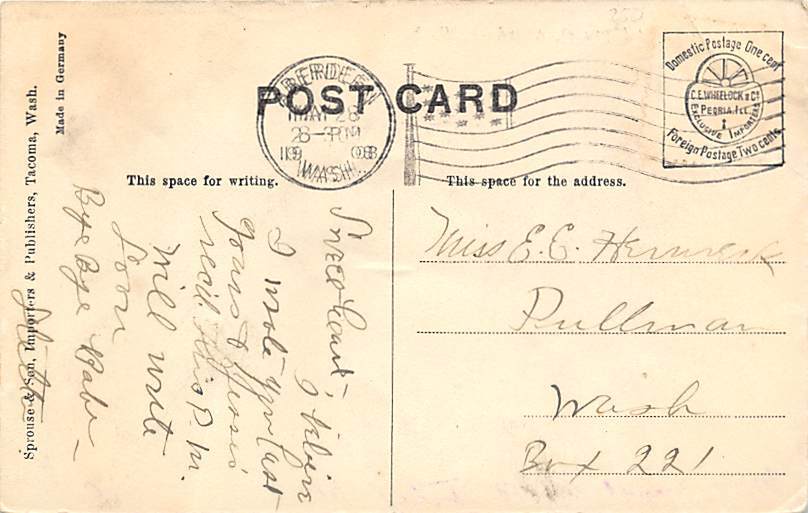 POST CARD
ABERDEEN
MAY 28
1908
WASH.
Domestic Postage One cent
C.E. WHEELOCK & CO
PEORIA, ILL.
EXCLUSIVE IMPORTERS
Foreign Postage Two cents
This space for writing.
This space for the address.
Made in Germany
Sprouse & Son, Importers & Publishers, Tacoma, Wash.
Sweetheart,
I wrote you last
yours &
recd this P.M.
Will write
Soon
Bye Bye Babe -
Miss E. E.
Pullman
Wash
Box 221